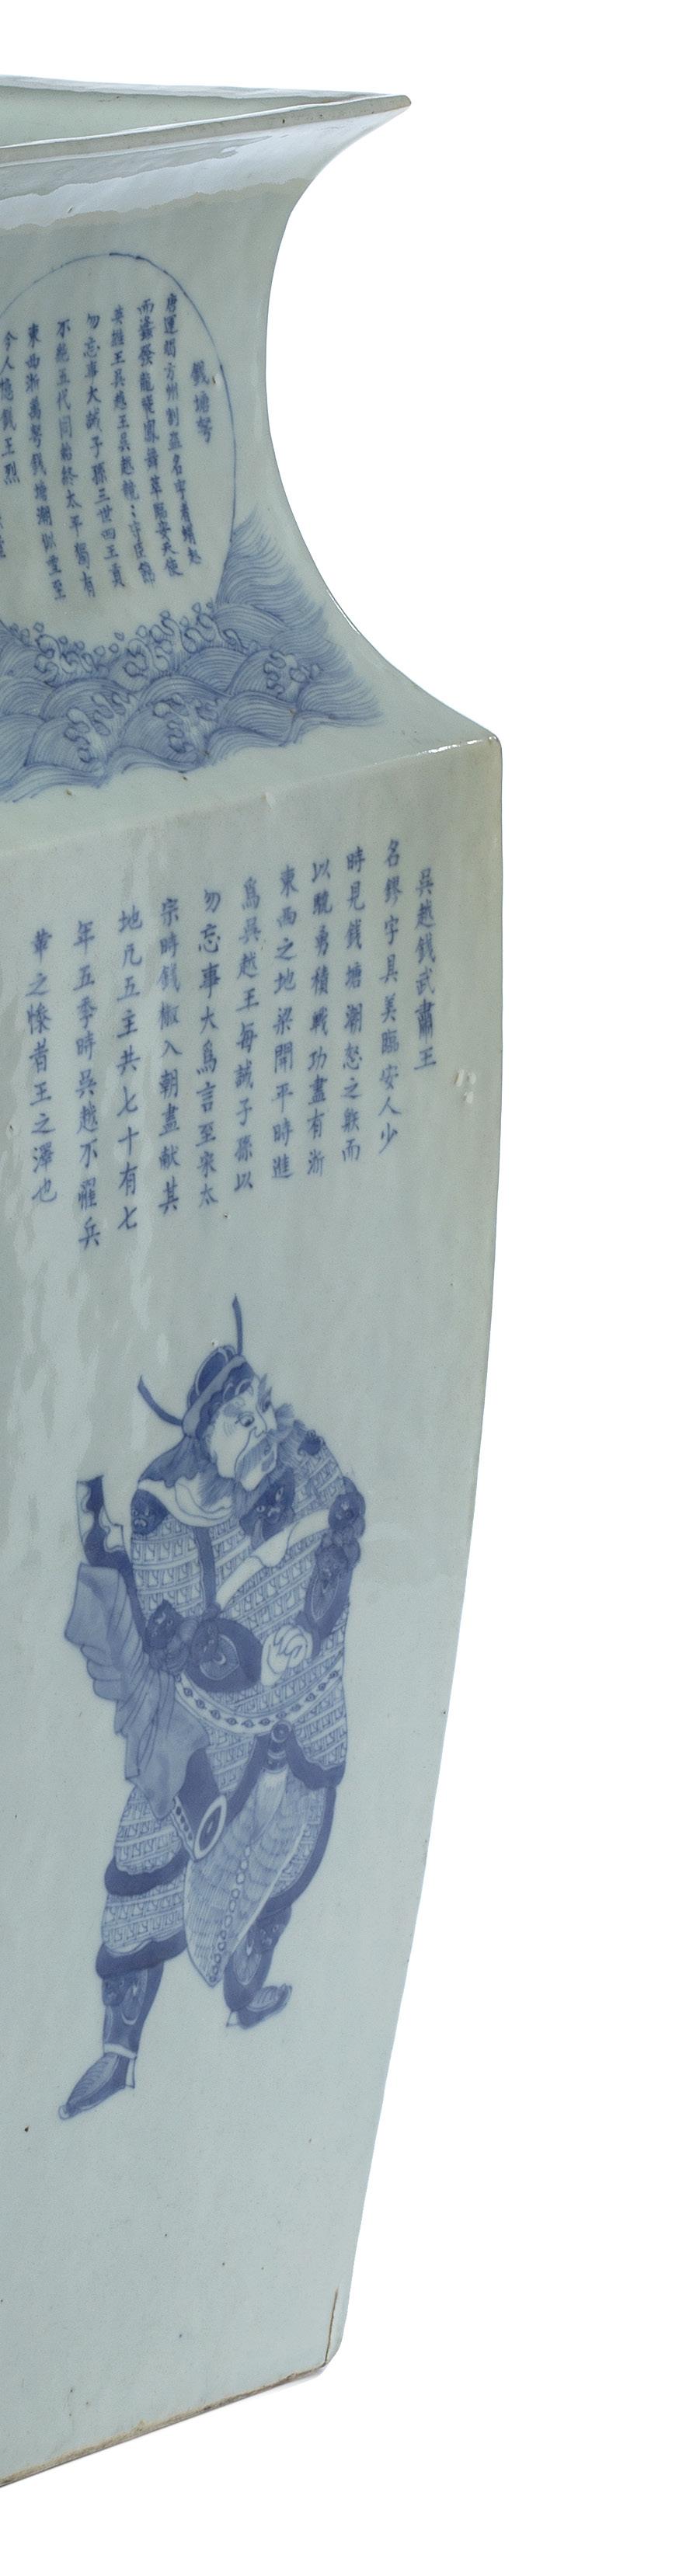 錢塘弩
唐運方州割盜名字者蝟起
而發龍蹤鳳舞萃臨安天使
英雄王吳越王吳越兢ミ守臣節
勿忘事大誡子孫三世四王貢
不絕五代同始終太平獨有
東西浙萬弩錢塘潮似雪至
今人憶錢王烈
吳越錢武肅王
名鏐字具美臨安人少
時見錢塘潮怒之而
以驍勇積戰功盡有浙
東西之地梁開平時進
為吳越王每誡子孫以
勿忘事大為言至宋太
宗時錢椒入朝盡献其
地凡五主共七十有七
年五季時吳越不罹兵
革之慘者王之澤也